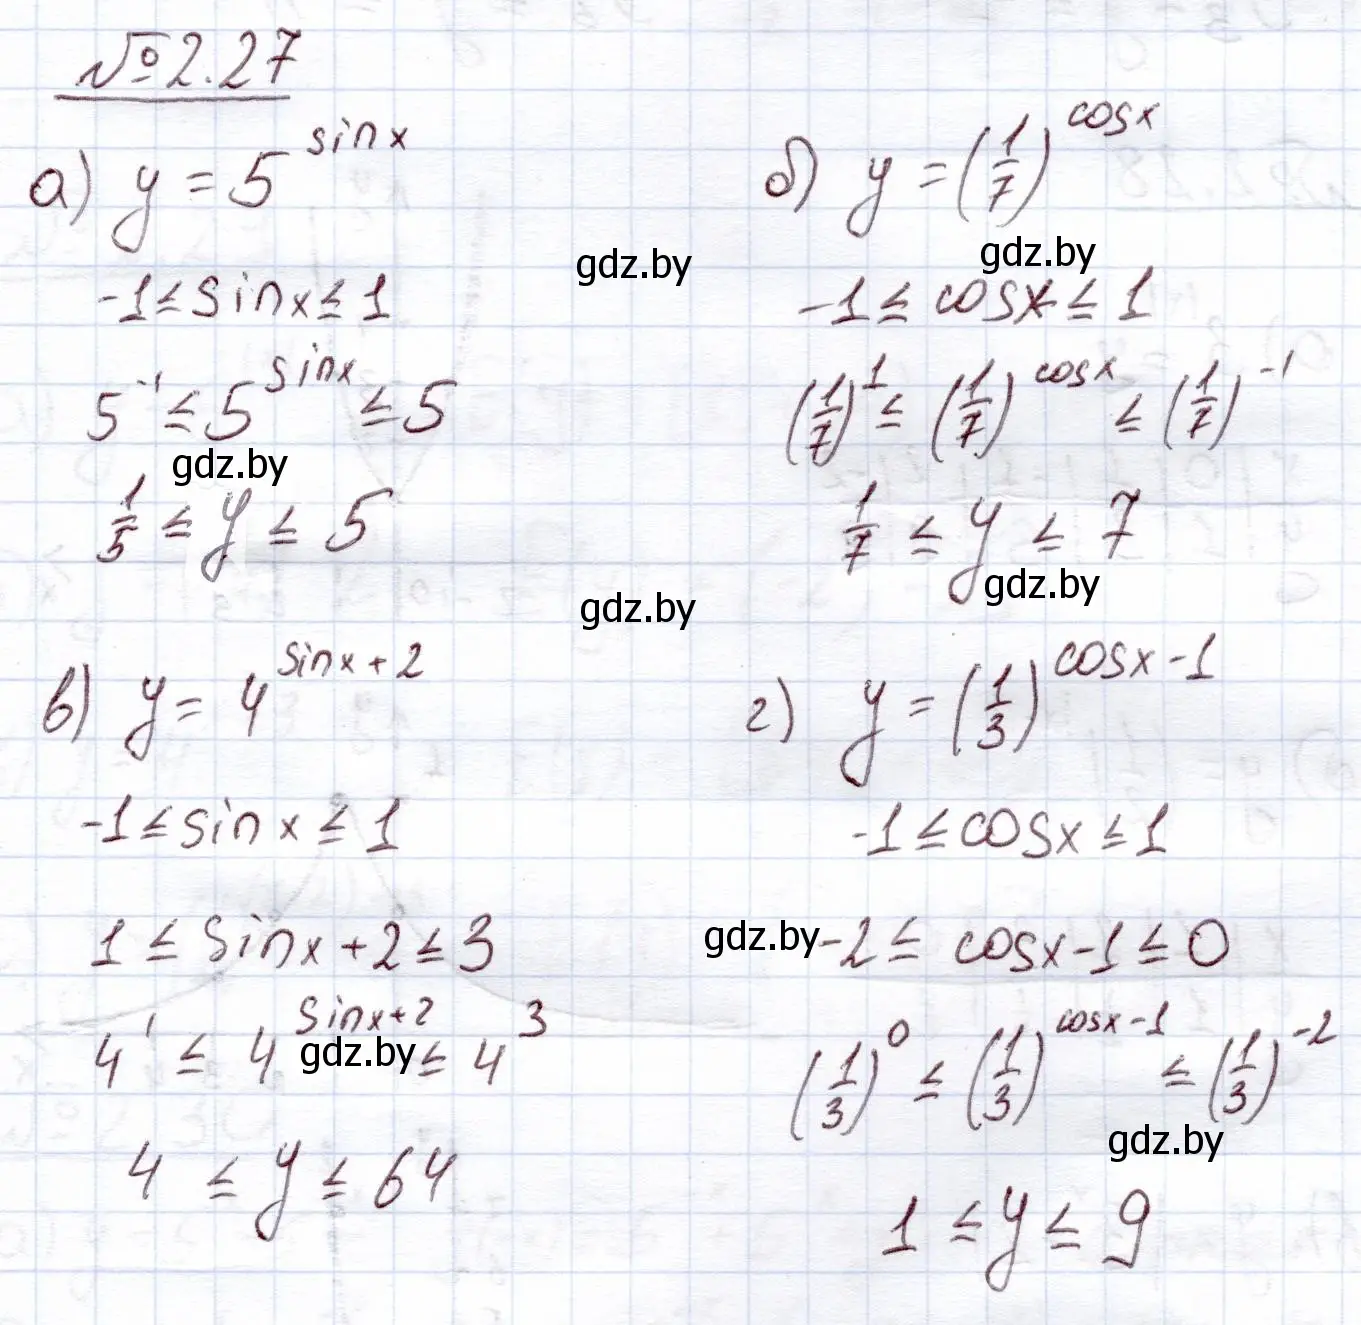 №2.27
а) y = 5^{sin x}
-1 ≤ sin x ≤ 1
5^{-1} ≤ 5^{sin x} ≤ 5
1/5 ≤ y ≤ 5
б) y = (1/7)^{cos x}
-1 ≤ cos x ≤ 1
(1/7)^{1} ≤ (1/7)^{cos x} ≤ (1/7)^{-1}
1/7 ≤ y ≤ 7
в) y = 4^{sin x + 2}
-1 ≤ sin x ≤ 1
1 ≤ sin x + 2 ≤ 3
4^{1} ≤ 4^{sin x + 2} ≤ 4^{3}
4 ≤ y ≤ 64
г) y = (1/3)^{cos x - 1}
-1 ≤ cos x ≤ 1
-2 ≤ cos x - 1 ≤ 0
(1/3)^{0} ≤ (1/3)^{cos x - 1} ≤ (1/3)^{-2}
1 ≤ y ≤ 9
gdz.by
gdz.by
gdz.by
gdz.by
gdz.by
gdz.by
gdz.by
gdz.by